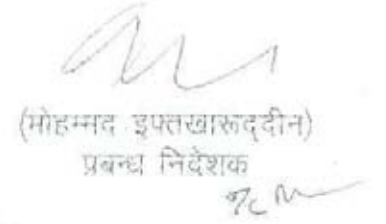 (मोहम्मद इफ्तखारूद्दीन)
प्रबन्ध निदेशक